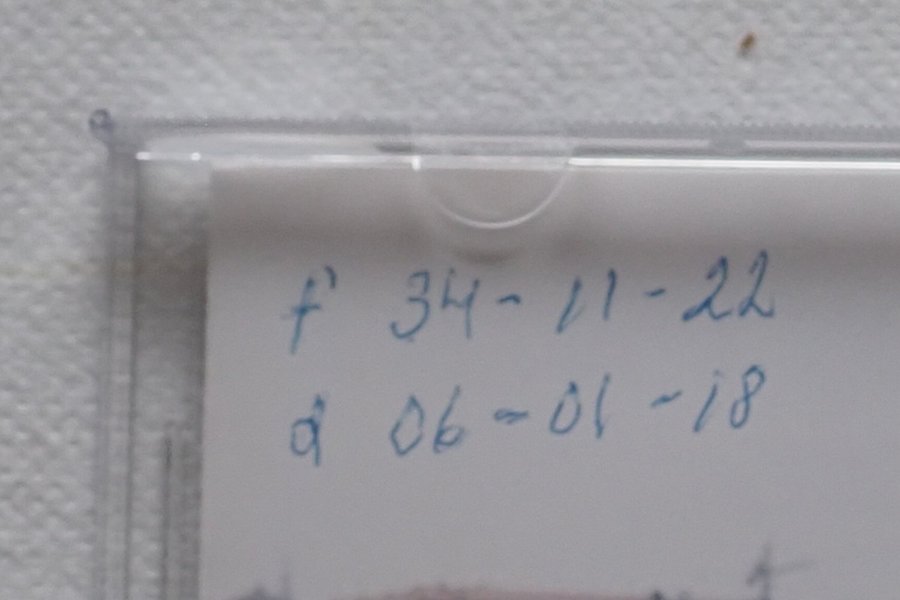 f 34-11-22
d 06-01-18